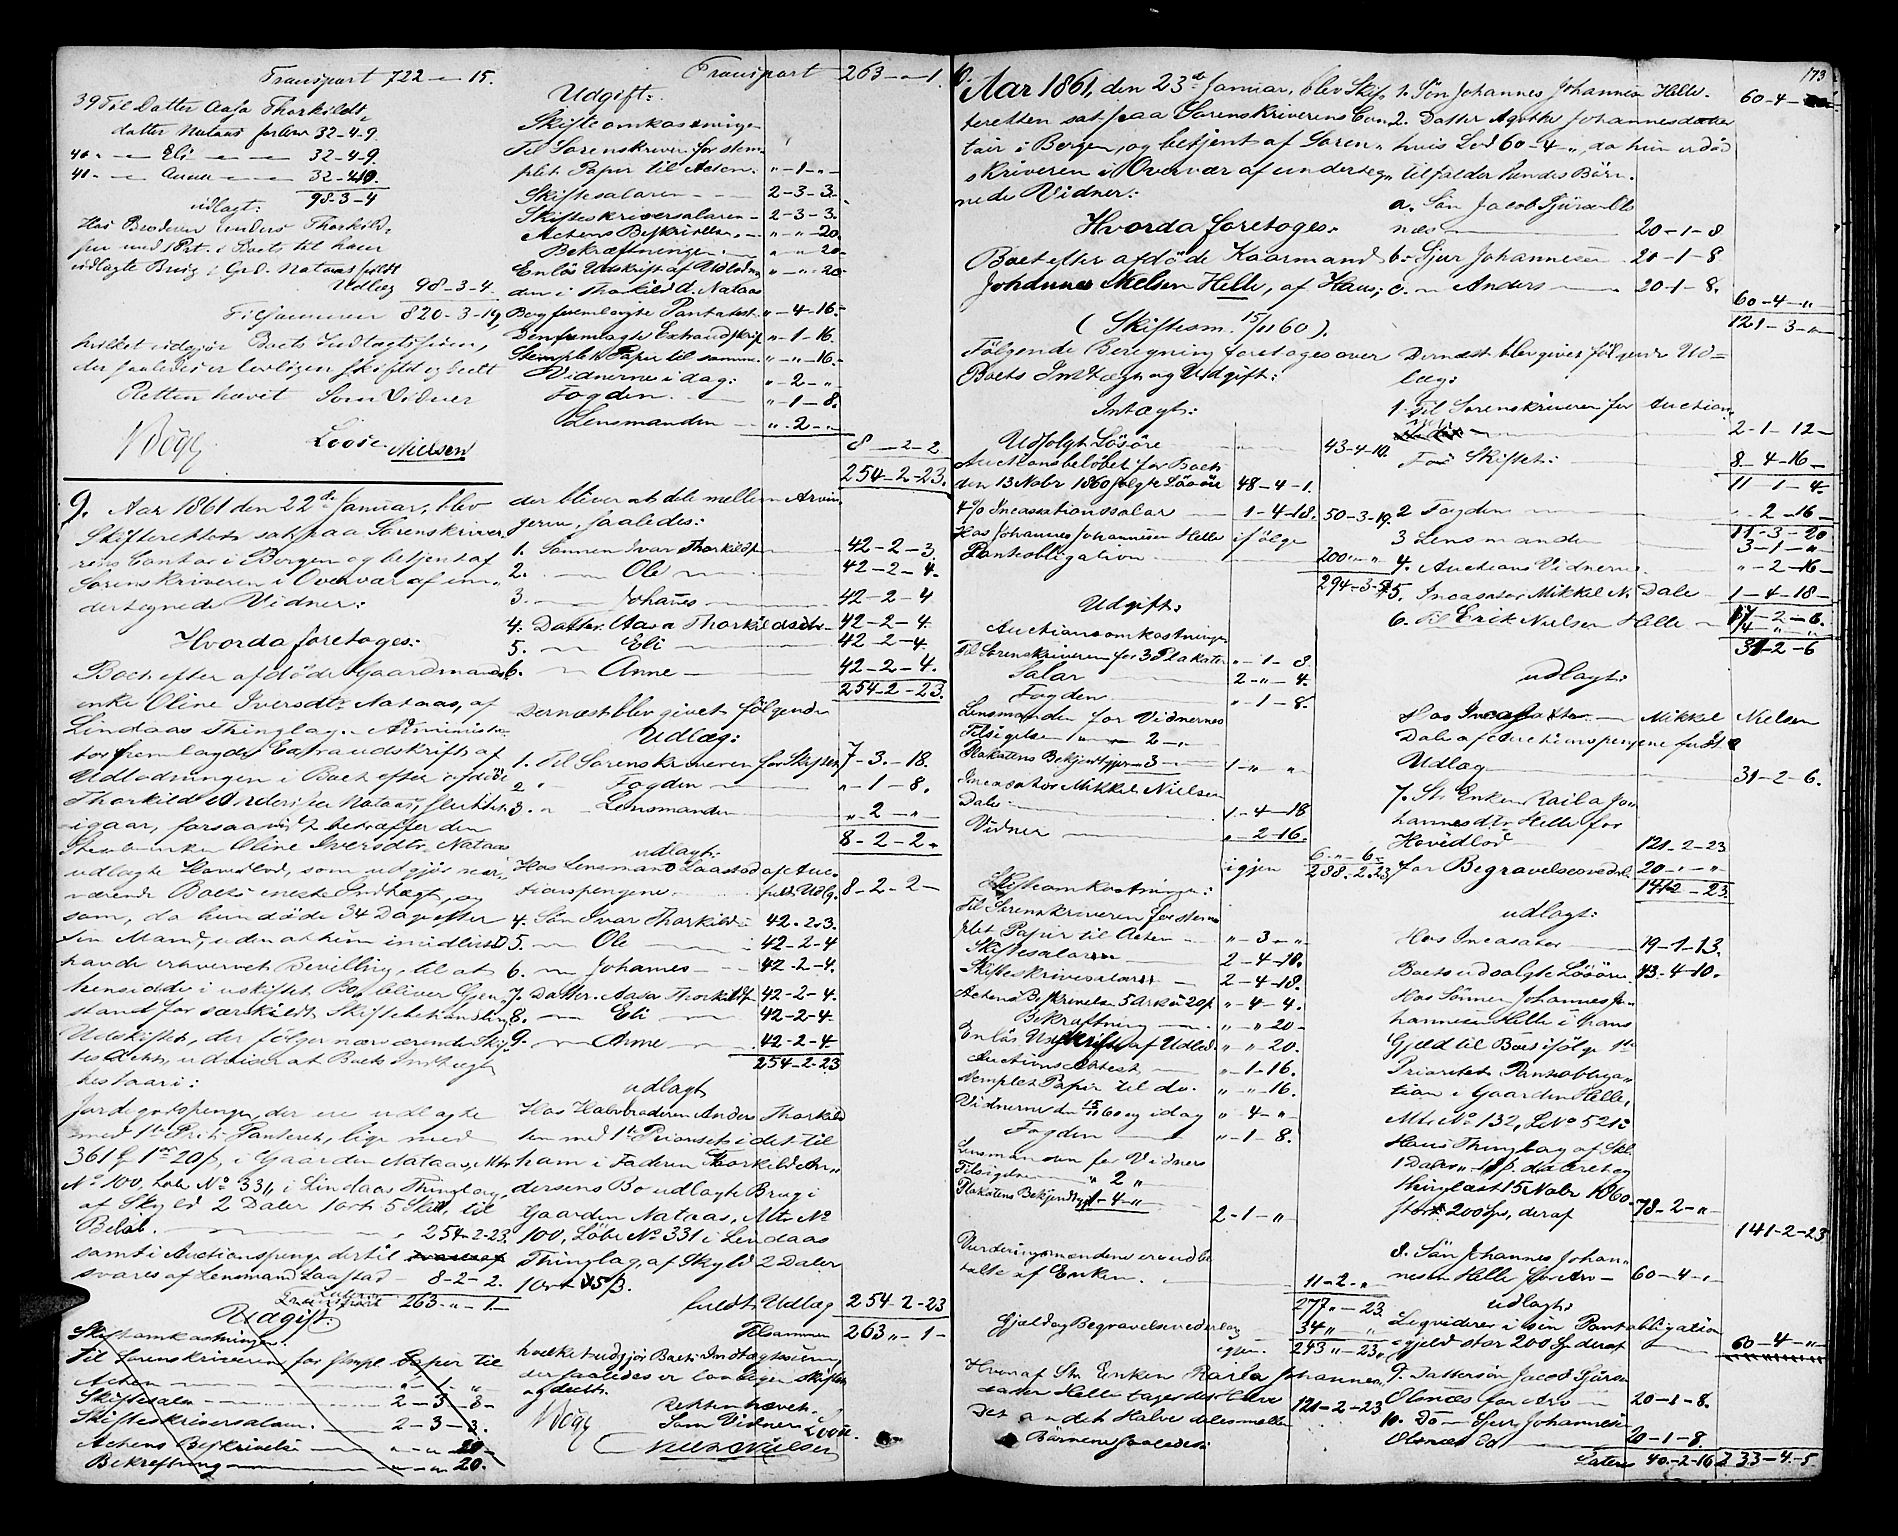 Transport 722 - " - 15.
39 Til Datter Aasa Thorkilds
datter Nataas for Arv 32-4-9.
40. — Eli — 32-4-9.
41. — Anne — 32-4-10.
98-3-4
udlagt:
Hos Broderen Anders Thorkild-
sen med 1 Prt. i Boets til ham
udlagte Brug i Grd. Nataas fuldt
Udlæg 98-3-4.
Tilsammen 820-3-19,
hvilket udgjør Boets Indtægtssum,
der saaledes er lovligen skiftet og deelt
Retten hævet Som Vidner
Nielsen
9. Aar 1861 den 22de Januar, blev
Skifteretten sat paa Sorenskrive-
rens Contor i Bergen og betjent af
Sorenskriveren i Overvær af un-
dertegnede Vidner:
Hvorda foretoges:
Boet efter afdøde Gaardmands-
enke Oline Iversdtr. Nataas, af
Lindaas Thinglag. Administra-
tor fremlagde Extraudskrift af
Udlodningen i Boet efter afdøde
Thorkild Andersen Nataas, sluttet
igaar, forsaavidt betræffer den
Oline Iversdtr. Nataas
udlagte Hovedlod, som udgjør nær-
værende Boets eneste Indtægt, og
som, da hun døde 34 Dage efter
sin Mand, uden at hun imidlertid
havde erhvervet Bevilling til at
hensidde i uskiftet Bo, bliver Gjen-
stand for særskildt Skiftebehandling
Udskriften, der følger nærværende Skif-
te Acten, udviser at Boets Indtægt
bestaar i:
Jordegodspenge, der ere udlagte
med 1ste Prts. Panteret, lige med
361 1 20, i Gaarden Nataas, Mtr.
No 100, Løbe No 331, i Lindaas Thinglag,
af Skyld 2 Daler 1 ort 5 Skill, til
Beløb — 254-2-23.
samt i Auctionspenge der til
svares af Lensmand Laastad — 8-2-2.
263-"-1-
Udgift.
Skifteomkostninger.
Til Sorenskriveren for stempl. Papir til
Acten — "-1-"
Skiftesalær — 2-3-3-
Skifteskriversalæren. — 2-3-3.
Actens Beskrivelse — "-"-20-
Bekræftning — "-"-20.
Transport 263-"-1
Udgift:
Skifteomkostninger
Til Sorenskriver for stem-
plet Papir til Acten. "-1-"-
Skiftesalæren — 2-3-3.
Skifteskriversalæren - 2-3-3.
Actens Beskrivelse — "-"-20.
Bekræftningen — "-"-20-
Enløs Udskrift af Udlodnin- "-"-20-
den i Thorkild A. Nataas
Bo fremlagte Pantattest. "-4-16-
Den fremlagte Extraudskrift "-1-16.
Stemplet Papir til samme. "-"-16-
Vidnerne i dag: "-2-"
Fogden. — "-1-8.
Lensmanden — "-2-"
8-2-2
254-2-23.
der bliver at dele mellem Arvin-
gerne, saaledes:
1. Sønnen Ivar Thorkilds. — 42-2-3.
2. — Ole — 42-2-4.
3. — Johannes — 42-2-4
4. Datter Aasa Thorkildsdtr. 42-2-4.
5. — Eli — 42-2-4.
6. — Anne — 42-2-4.
254-2-23.
Dernæst blev givet følgende
Udlæg:
1. Til Sorenskriveren for Skiftet 7-3-18.
2 " Fogden — "-1-8.
3. " Lensmanden — "-2-"
8-2-2"
udlagt:
Hos Lensmand Laastad af Auc-
tionspengene fuldt Udlg. 8-2-2-
4. Søn Ivar Thorkilds. 42-2-3.
5. — Ole — 42-2-4
6. — Johannes — 42-2-4.
7. Datter Aasa Thorkildsd. 42-2-4.
8. — Eli — 42-2-4.
9. — Anne — 42-2-4.
254-2-23
udlagt
Hos Halvbroderen Anders Thorkild-
sen med 1ste Prioritet i det til
ham i Faderen Thorkild An-
dersens Bo udlagte Brug i
Gaarden Nataas, Mtr. No
100, Løbe No 331 i Lindaas
Thinglag, af Skyld 2 Daler
1 ort 5 ß.
fuldt Udlæg 254-2-23
Tilsammen 263 "-1-
hvilket udgjør Boets Indtægtssum,
der saaledes er lovligen skiftet
og deelt.
Retten hævet.
Som Vidner
Niels Nielsen
173
10. Aar 1861, den 23de Januar, blev Skif-
teretten sat paa Sorenskriverens Con-
toir i Bergen, og betjent af Soren-
skriveren i Overvær af underteg-
nede Vidner:
Hvorda foretoges:
Boet efter afdøde Kaarmand
Johannes Nielsen Helle, af Haus;
(Skiftesm. 15/11 60).
Følgende Beregning foretoges over
Boets Indtægt og Udgift:
Intægt:
Udsolgt Løsøre — 43-4-10.
Auctionsbeløbet for Boets
den 13 Nobr 1860 solgte Løsøre 48-4-1.
4% Incassationssalær — 1-4-18. 50-3-19.
Hos Johannes Johannesen Helle ifølge
Panteobligation — 200 " "
294-3-5
Udgift:
Auctionsomkostninger
Til Sorenskriveren for 3 Plakater "-1-3.
Salær — 2-"-4.
Fogden — "-1-8.
Lensmanden for Vidnernes
Tilsigelse " 2-"
Plakatens Bekjendtgjør. — 3 — 1-"-"
Incasator Mikkel Nielsen
Dale — 1-4-18
Vidner — "-2-16.
6-"-6-
igjen 288-2-23
Skifteomkostninger:
Til Sorenskriveren for stem-
plet Papir til Acten — "-3-"-
Skiftesalæren — 2-4-18.
Skifteskriversalæren — 2-4-18.
Actens Beskrivelse 5 Ark à 20 ß "-4-4.
Bekræftning — "-"-20-
Enløs Udskrift af Udlod. "-"-20.
Auctions Attest — "-1-16.
Stemplet Papir til do. "-"-16.
Vidnerne den 15/11 60 og i dag "-4-"
Fogden — "-1-8.
Lensmanden for Vidners
Tilsigelse " 2 "
Plakatens Bekjendtgj. 1-4-"
2-1-"
Vurderingsmændene ere udbe-
talte af Enken.
11-2-"
277 "-23.
Gjæld og Begravelsesvederlag 34 " "
igjen. 243 "-23,
Hvoraf Enken Raila Johannes-
datter Helle tager det Halve 121-2-23
Det andet Halve deles mellem
Børnene saaledes:
1. Søn Johannes Johannesen Helle. 60-4-
2. Datter Agathe Johannesdatter
hvis Lod 60-4-", da hun er død
tilfalder hendes Børn.
a. Søn Jacob Sjursen Ols-
næs — 20-1-8
b. Sjur Johannesen 20-1-8
c. — Anders — 20-1-8.
60-4-"
121-3-"
Dernæst blev givet følgende Ud-
læg:
1 Til Sorenskriveren for Auction
2-1-12-
For Skiftet: 8-4-16-
11 1-4-
2 Fogden — "-2-16-
11-3-20
3 Lensmanden — 3-1-"
4. Auctions Vidnerne — "-2-16-
5. Incasator Mikkel N. Dale — 1-4-18-
17-2-6.
6. Til Erik Nielsen Helle — 14-"-"
31-2-6
udlagt:
Hos Incasator — Mikkel Nielsen
Dale af Auctionspengene fuldt
Udlæg — 31-2-6.
7. Enken Raila Jo-
hannesdtr. Helle for
Hovedlod — 121-2-23
for Begravelsesvederl. 20-"-"
141-2-23.
udlagt:
Hos Incasator — 19-1-13.
Boets udsolgte Løsøre 43-4-10.
Hos Sønnen Johannes Jo-
hannesen Helle i hans
Gjæld til Boet ifølge 1ste
Prioritet Panteobliga-
tion i Gaarden Helle,
Mtr. No 132, L No 521 i
Haus Thinglag af Skl.
1 Daler " 18 ß. dateret og
thinglæst 15 Nobr 1860.
stor 200 Sp., deraf 78-2-"-
141-2-23
8. Søn Johannes Johan-
nesen Helle for Arv — 60-4-"
udlagt:
Liqviderer i sin Pantobligation
gjeld stor 200 Sp. deraf — 60-4-"-
9. Dattersøn Jacob Sjursen
Olsnæs for Arv — 20-1-8.
10. Do — Sjur Johannesen
Olsnæs Do — 20-1-8.
Lateris 40-2-16 233-4-5.